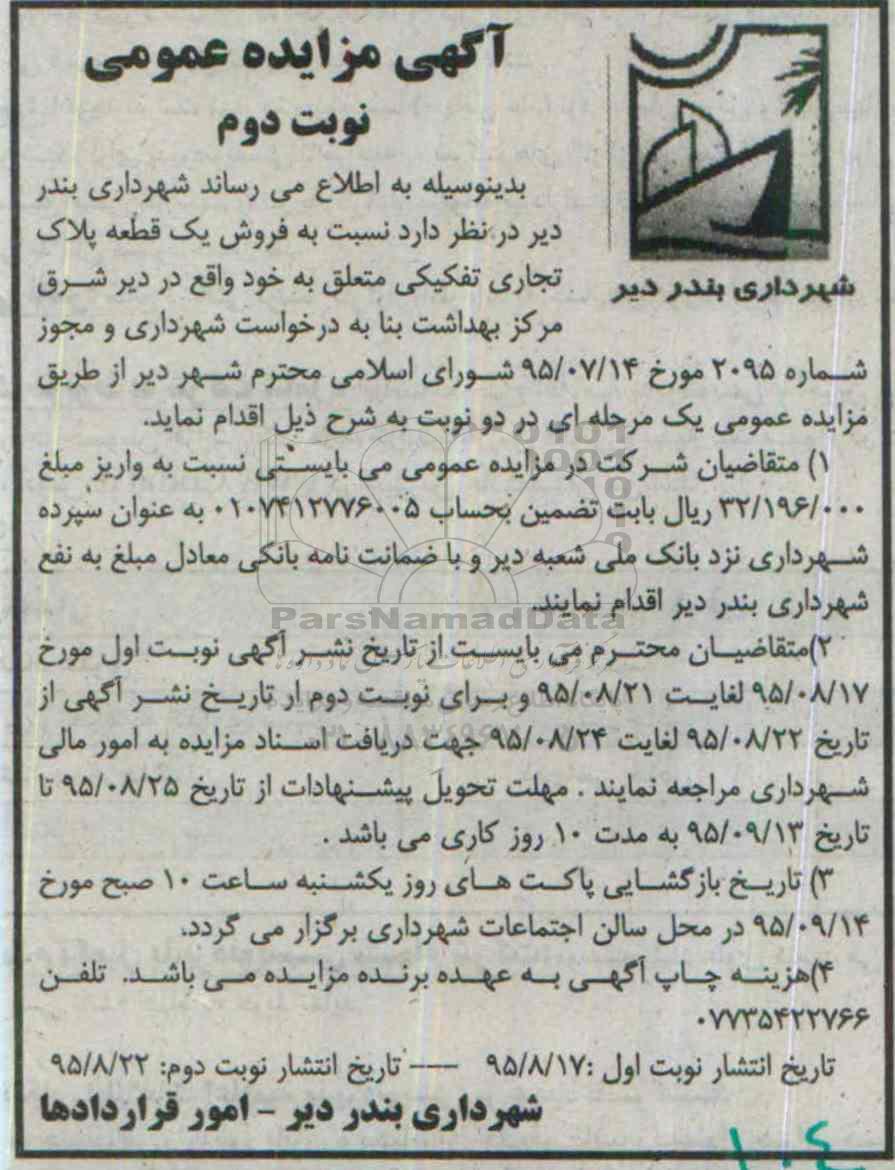 آگهی مزایده عمومی
نوبت دوم
بدینوسیله به اطلاع می رساند شهرداری بندر
دیر در نظر دارد نسبت به فروش یک قطعه پلاک
تجاری تفکیکی متعلق به خود واقع در دیر شرق
مرکز بهداشت بنا به درخواست شهرداری و مجوز
شهرداری بندر دیر
شماره ۲۰۹۵ مورخ ۹۵/۰۷/۱۴ شورای اسلامی محترم شهر دیر از طریق
مزایده عمومی یک مرحله ای در دو نوبت به شرح ذیل اقدام نماید.
۱) متقاضیان شرکت در مزایده عمومی می بایستی نسبت به واریز مبلغ
۳۲/۱۹۶/۰۰۰ ریال بابت تضمین بحساب ۰۱۰۷۴۱۲۷۷۶۰۰۵ به عنوان سپرده
شهرداری نزد بانک ملی شعبه دیر و با ضمانت نامه بانکی معادل مبلغ به نفع
شهرداری بندر دیر اقدام نمایند.
ParsNamadData
۲)متقاضیان محترم می بایست از تاریخ نشر آگهی نوبت اول مورخ
۹۵/۰۸/۱۷ لغایت ۹۵/۰۸/۲۱ و برای نوبت دوم ار تاریخ نشر آگهی از
تاریخ ۹۵/۰۸/۲۲ لغایت ۹۵/۰۸/۲۴ جهت دریافت اسناد مزایده به امور مالی
شهرداری مراجعه نمایند . مهلت تحویل پیشنهادات از تاریخ ۹۵/۰۸/۲۵ تا
تاریخ ۹۵/۰۹/۱۳ به مدت ۱۰ روز کاری می باشد .
۳) تاریخ بازگشایی پاکت های روز یکشنبه ساعت ۱۰ صبح مورخ
۹۵/۰۹/۱۴ در محل سالن اجتماعات شهرداری برگزار می گردد.
۴)هزینه چاپ آگهی به عهده برنده مزایده می باشد. تلفن
۰۷۷۳۵۴۲۲۷۶۶
تاریخ انتشار نوبت اول :۹۵/۸/۱۷ --- تاریخ انتشار نوبت دوم: ۹۵/۸/۲۲
شهرداری بندر دیر - امور قراردادها